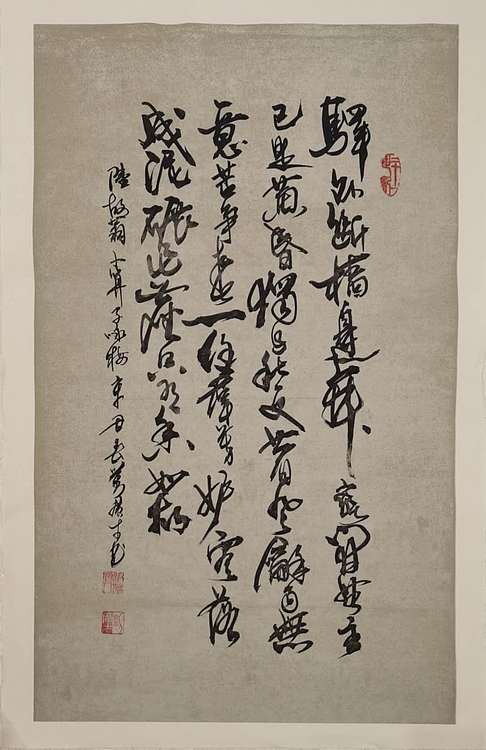 驛外斷橋邊寂寞開無主
已是黃昏獨自愁更著風和雨無
意苦爭春一任群芳妒零落
成泥碾作塵只有香如故
陸放翁卜算子咏梅